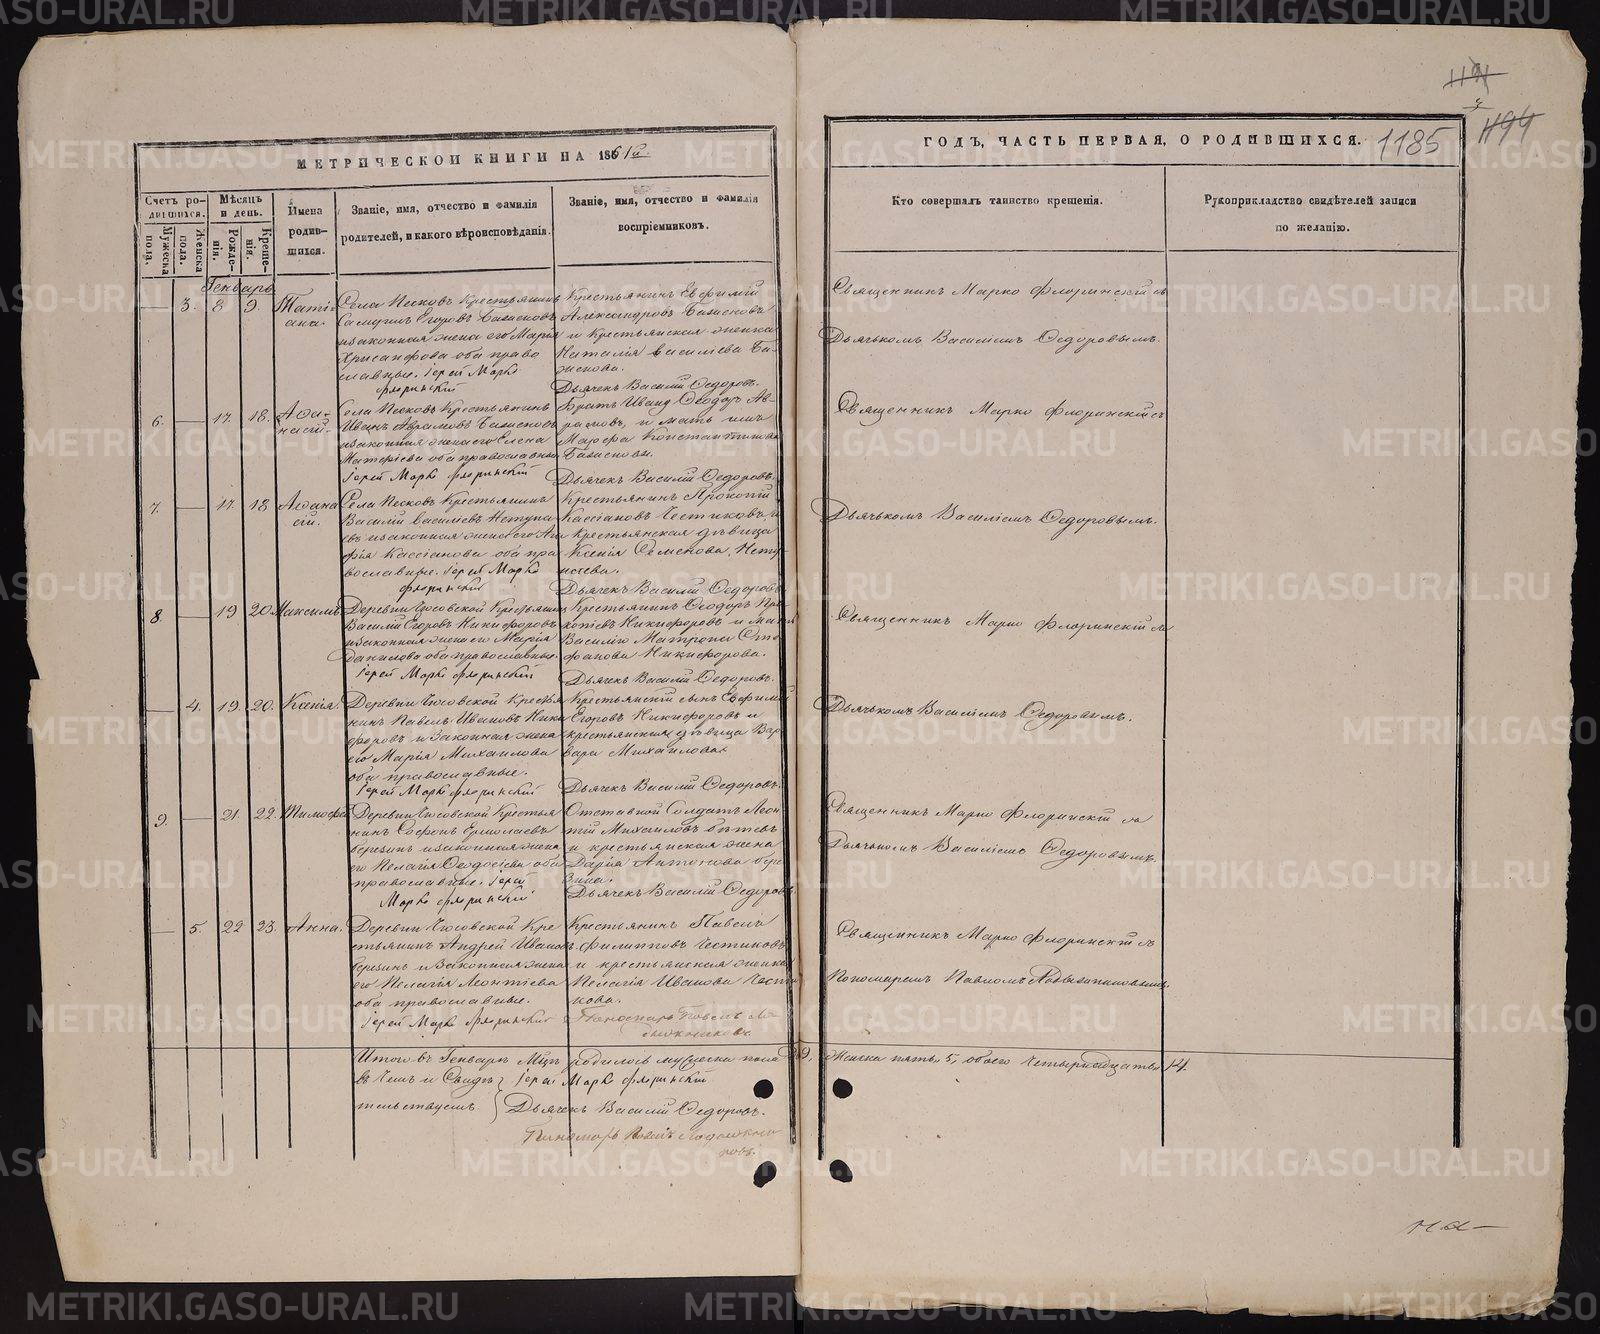 МЕТРИЧЕСКОЙ КНИГИ НА 1861й
Счетъ родившихся.
Мужеска пола.
Женска пола.
Мѣсяцъ и день.
Рожденія.
Крещенія.
Имена родившихся.
Званіе, имя, отчество и фамилія родителей, и какого вѣроисповѣданія.
Званіе, имя, отчество и фамилія воспріемниковъ.
ГОДЪ, ЧАСТЬ ПЕРВАЯ, О РОДИВШИХСЯ.
1185
1194
Кто совершалъ таинство крещенія.
Рукоприкладство свидѣтелей записи по желанію.
Генварь
3. 8 9. Татіана.
Села Песковъ Крестьянинъ
Самуилъ Егоровъ Баженовъ
и законная жена его Марія
Хрисанфова оба право
славные. Іерей Марко
Флоринскій
Крестьянинъ Евфимій
Александровъ Баженовъ
и Крестьянская женка
Наталія Василіева Ба-
женова.
Дьячекъ Василій Ѳедоровъ.
Священникъ Марко Флоринскій съ
Дьячькомъ Василіемъ Ѳедоровымъ.
6. 17. 18. Аѳа-
насій.
Села Песковъ Крестьянинъ
Иванъ Аврамовъ Баженовъ
и законная жена его Елена
оба православные
Іерей Марко Флоринскій
Братъ Ѳеодоръ Ав-
рамовъ, и мать
Константинова
Баженовы.
Дьячекъ Василій Ѳедоровъ.
Священникъ Марко Флоринскій съ
7. 17. 18 Аѳана
сій.
Села Песковъ Крестьянинъ
Василій Василіевъ
и законная жена его Ага
фія Кассіанова оба пра
вославные. Іерей Марко
Флоринскій
Крестьянинъ Прокопій
Кассіановъ Честиковъ, и
Крестьянская дѣвица
Ксенія Семенова
Дьячекъ Василій Ѳедоровъ
Дьячькомъ Василіемъ Ѳедоровымъ.
8. 19 20 Максимъ
Деревни Чюсовской Крестьянинъ
Василій Егоровъ Никифоровъ
и законная жена его Марія
Данилова оба православные.
Іерей Марко Флоринскій
Крестьянинъ Ѳеодоръ Про
копіевъ Никифоровъ и
Матрона Сте
фанова Никифорова.
Дьячекъ Василій Ѳедоровъ.
Священникъ Марко Флоринскій съ
4. 19. 20. Ксенія.
Деревни Чюсовской Крестья
нинъ Павелъ Ивановъ Ники
форовъ и Законная жена
его Марія Михаилова
оба православные.
Іерей Марко Флоринскій
Крестьянскій сынъ Евфимій
Егоровъ Никифоровъ и
крестьянская дѣвица Вар
вара Михаилова
Дьячекъ Василій Ѳедоровъ.
Дьячькомъ Василіемъ Ѳедоровымъ.
9. 21. 22. Тимофей
Деревни Чюсовской Крестья
нинъ Софонъ Ермолаевъ
Березинъ и законная жена
его Пелагія Ѳеодосіева оба
православные. Іерей
Марко Флоринскій
Отставной Солдатъ Леон
тій Михаиловъ
и крестьянская жена
Дарія Антонова Бере
зина.
Дьячекъ Василій Ѳедоровъ
Священникъ Марко Флоринскій съ
Дьячькомъ Василіемъ Ѳедоровымъ.
5. 22 23. Анна.
Деревни Чюсовской Кре
стьянинъ Андрей Ивановъ
Березинъ и Законная жена
его Пелагія Леонтіева
оба православные.
Іерей Марко Флоринскій
Крестьянинъ Павелъ
Филипповъ Честиковъ
и крестьянская женка
Пелагія Иванова Чести
кова.
Пономарь Павелъ
Священникъ Марко Флоринскій съ
Пономаремъ Павломъ
Итого въ Генварѣ Мцѣ родилось мужеска пола 9, Женска пять, 5, обоего Четырнадцать 14.
Въ Чемъ и Свидѣ Іерей Марко Флоринскій
тельствуемъ Дьячекъ Василій Ѳедоровъ.
Пономарь Павелъ